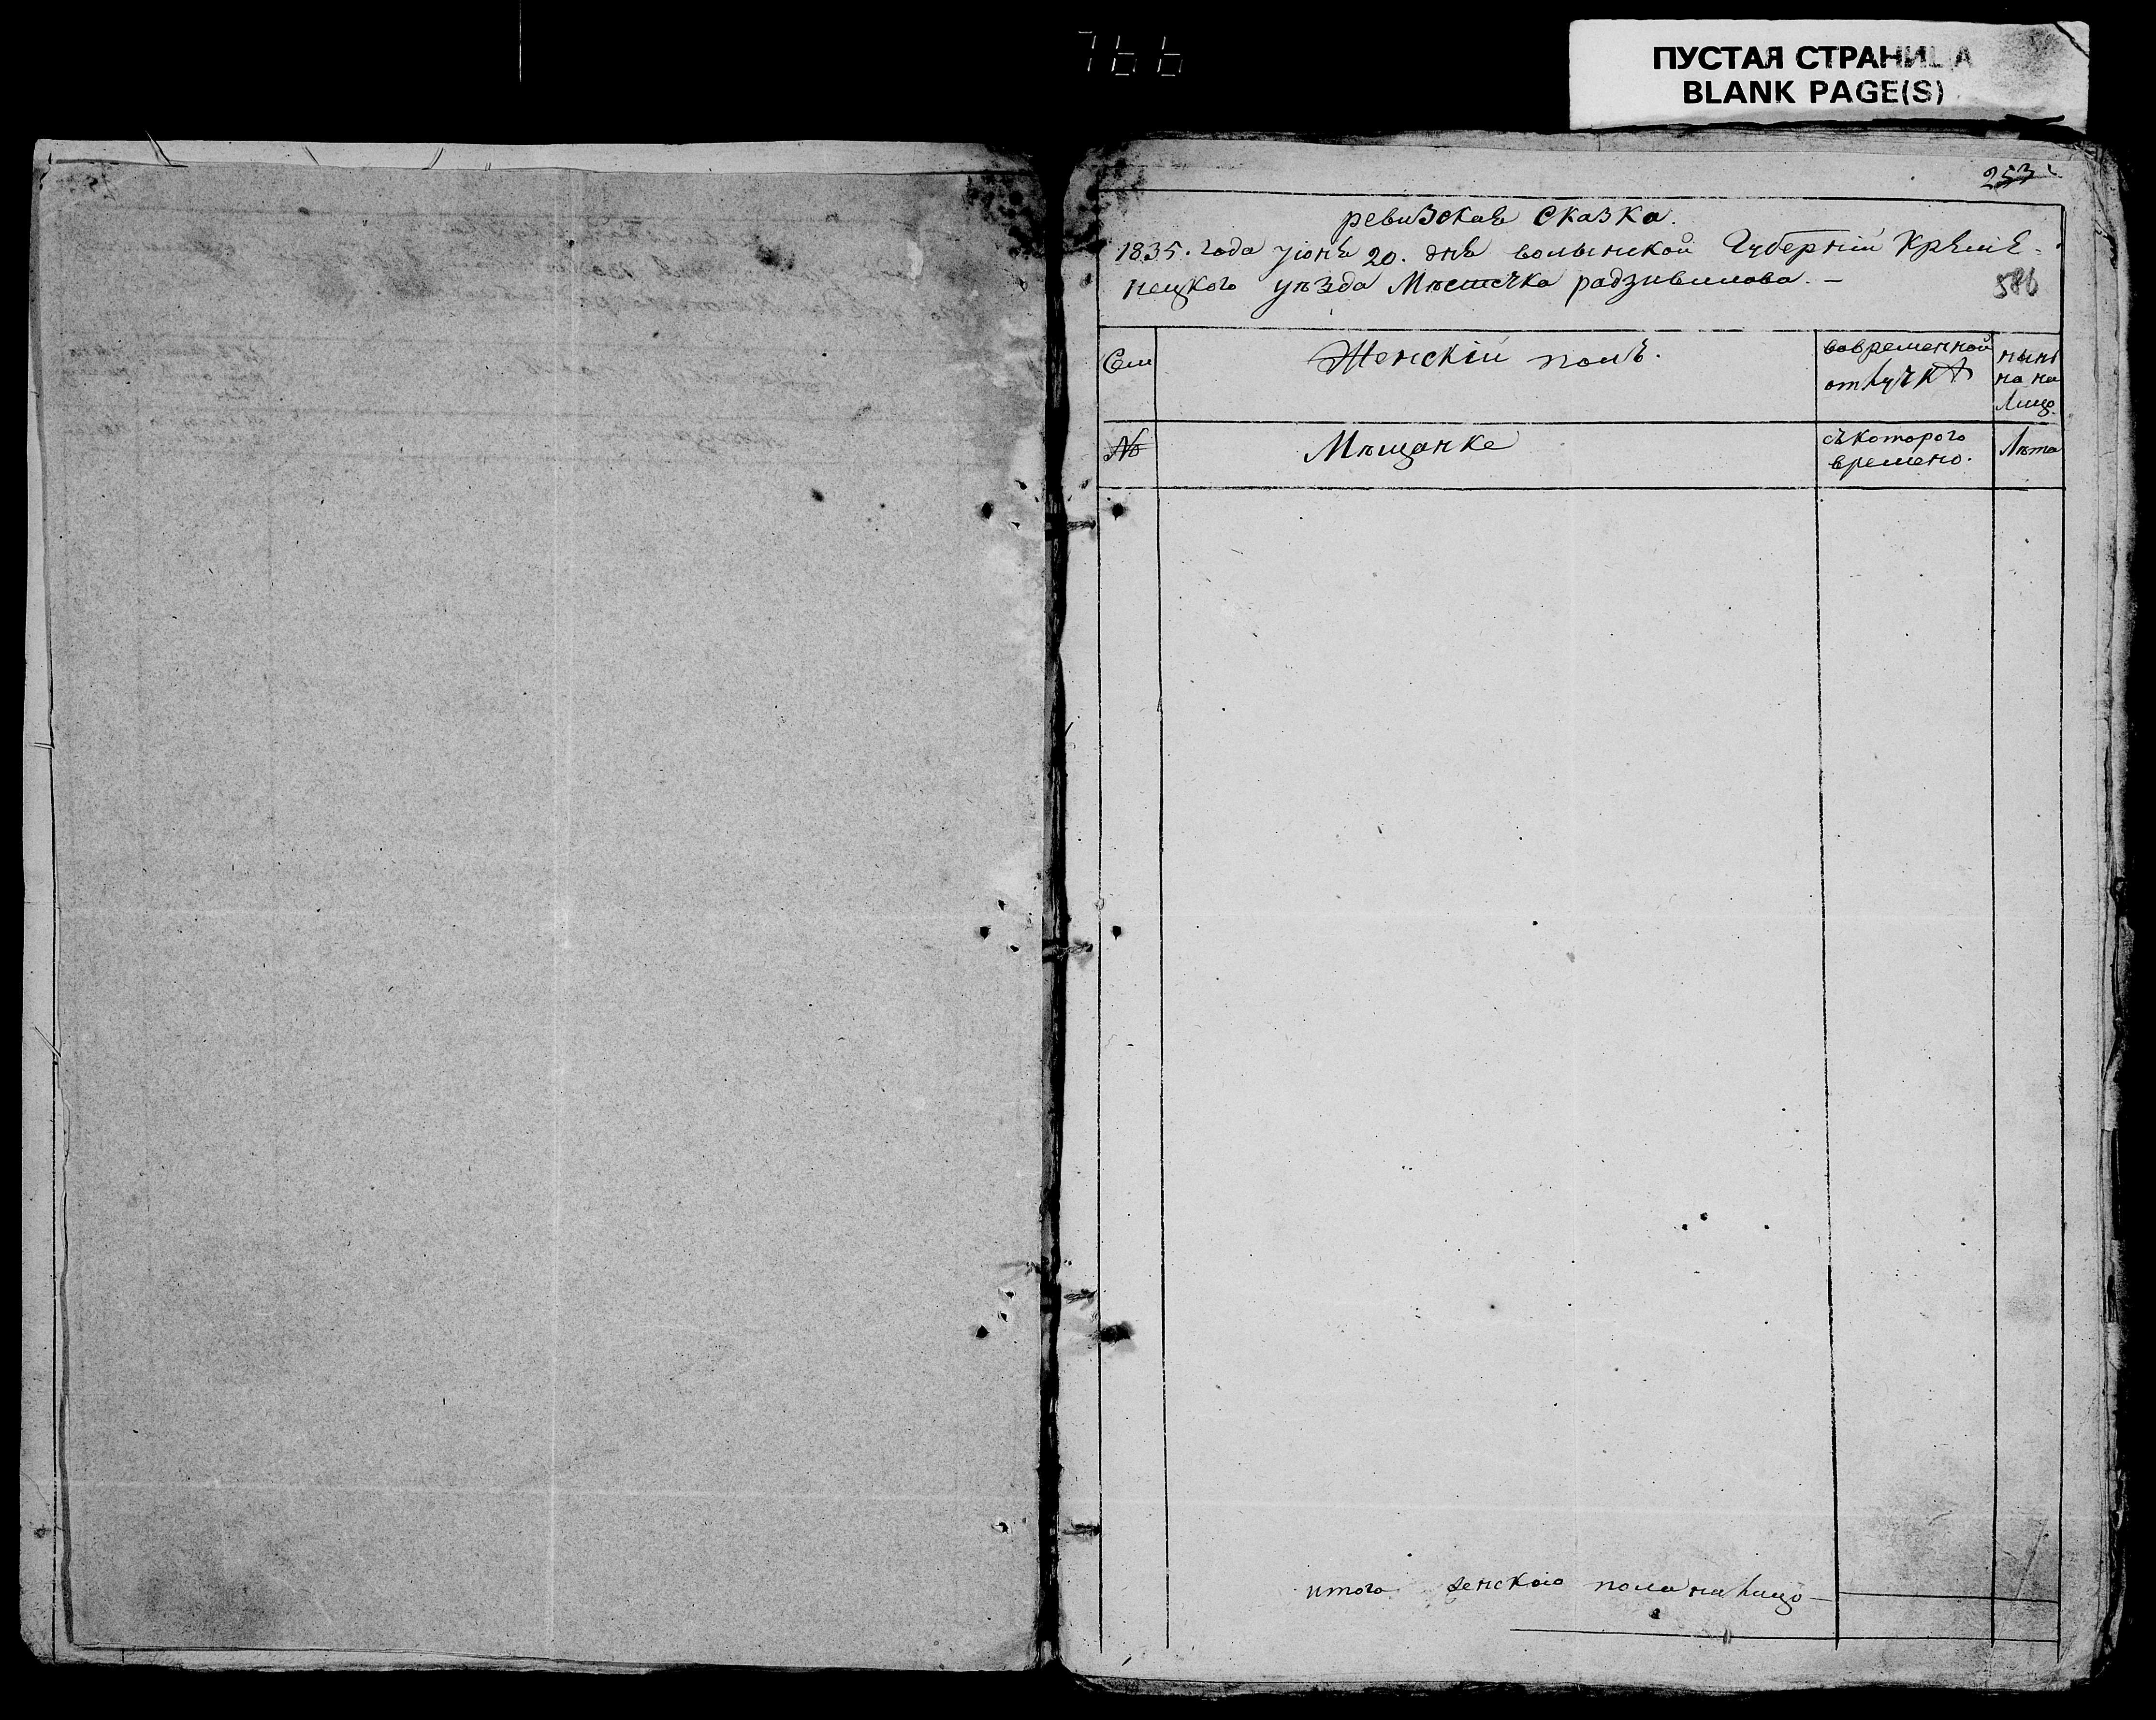 766
ПУСТАЯ СТРАНИЦА
BLANK PAGE(S)
253
ревизская Сказка.
1835. года Июня 20. дня волынской Губерніи Кремѣ-
нецкого уѣзда Мѣстечка радзивилова. –
586
Сем
Женскій полъ.
вовременной
отлучкѣ
нынѣ
на на
Лицо.
№
Мѣщанке
съкоторого
времено.
Лѣта
итого женского пола на лицо –